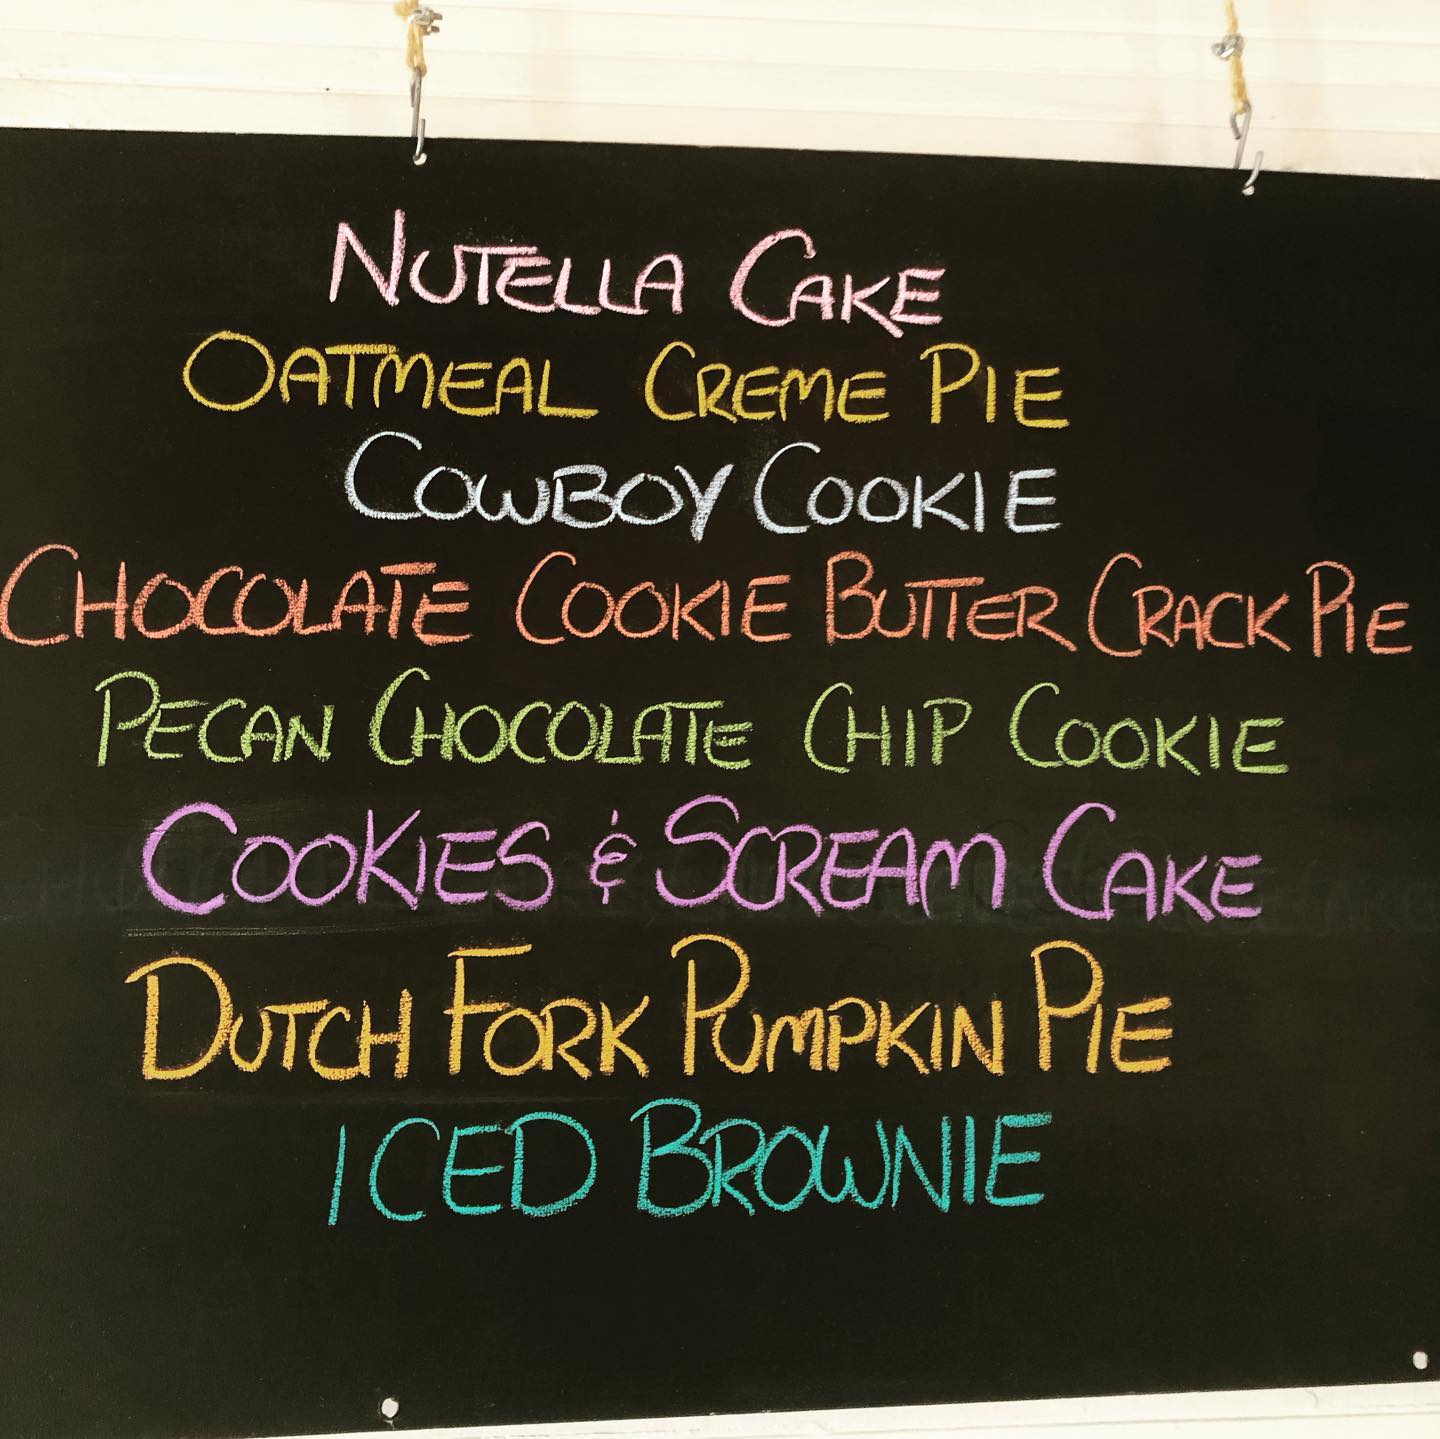 NUTELLA CAKE
OATMEAL CREME PIE
COWBOY COOKIE
CHOCOLATE COOKIE BUTTER CRACK PIE
PECAN CHOCOLATE CHIP COOKIE
COOKIES & SCREAM CAKE
DUTCH FORK PUMPKIN PIE
ICED BROWNIE